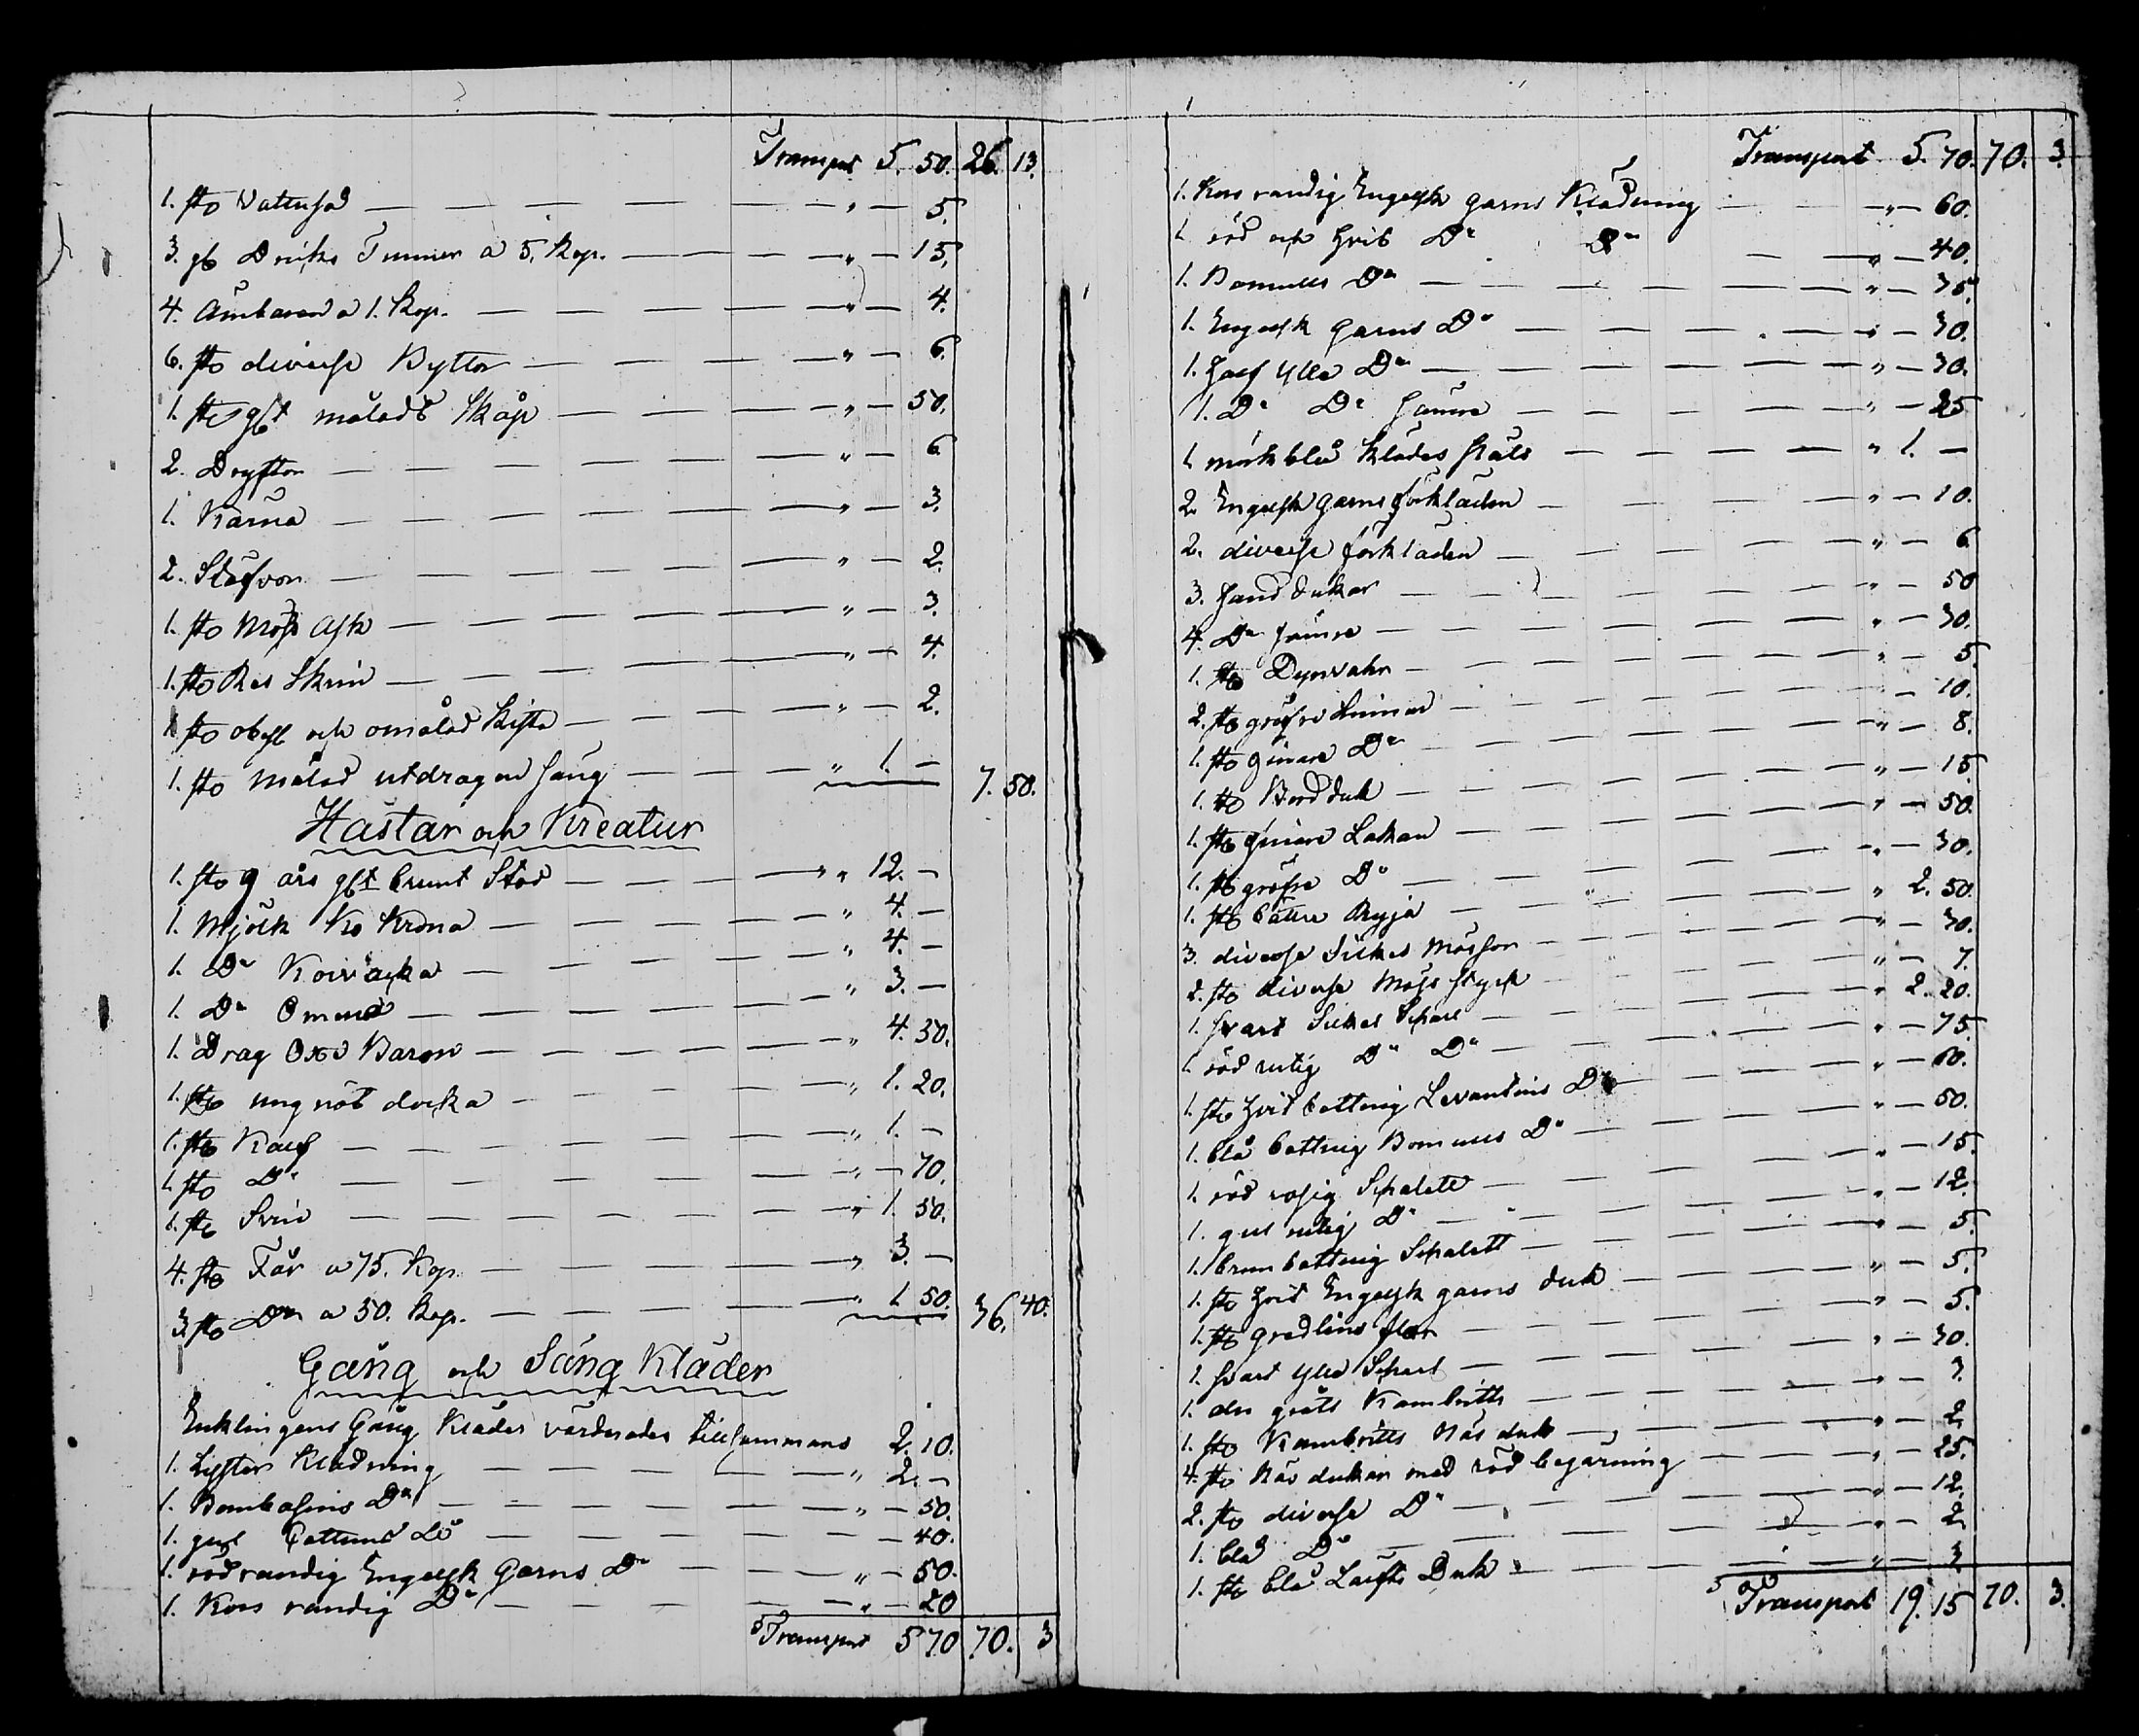 Transport 5. 50. 26. 13.
1. sto Vattusad — „ — 5.
3. gl Dricks Tunnor a 5. kop. — „ — 15.
4. Ämbaren a 1. kop. — „ — 4.
6. sto diverse Byttor — „ — 6.
1. sto glt måladt Skåp — „ — 50.
2. Dryftor — „ — 6
1. Kärna — „ — 3.
2. Stäfvor — „ — 2.
1. sto Möss Ask — „ — 3.
1. sto Res Skrin — „ — 4.
1 sto obesl och omålad Kista — „ — 2.
1. sto Målad utdragen säng — „ 1. — 7. 50.
Hästar och Kreatur
1. sto 9 års glt brunt Stod — „ 12. —
1. Mjölk Ko Krona — „ 4. —
1. Do — „ 4. —
1. Do Omena — „ 3. —
1. Drag Oxe Baron — „ 4. 50.
1. sto ung nöt — „ 1. 20.
1. sto Kalf — „ 1. —
1. sto Do — „ — 70.
1. sto Svin — „ 1. 50.
4. sto Får a 75. Kop. — „ 3. —
3. sto Do a 50. kop. — „ 1 50. 36. 40.
Gång och Säng Kläder
Enklingens Gång Kläder värderades tillsammans 2. 10.
1. Lyster Klädning — „ 2. —
1. Bombasins Do — „ — 50.
1. gul Cattuns Do — — 40.
1. rödrandig Engelsk Garns Do — „ — 50.
1. Kors randig Do — „ — 20
Transport 5 70 70. 3
Transport 5. 70. 70. 3.
1. Kors randig Engelsk garns Klädning — „ — 60.
1. röd och hvit Do Do — „ — 40.
1. Bomulls Do — „ — 35.
1. Engelsk garns Do — „ — 30.
1. Half Ylle Do — „ — 30.
1. Do Do sämre — „ — 25
1 mörkblå klädes — „ 1. —
2. Engelsk garns förkläden — „ — 10.
2. diverse förkläden — „ — 6
3. Hand dukar — „ — 50
4. Do sämre — „ — 30.
1. sto Dynvahr — „ — 5.
2. sto gröfre — — 10.
1. sto finare Do — „ — 8.
1. sto Bordduk — „ — 15
1. sto finare Lakan — „ — 50.
1. sto gröfre Do — „ — 30.
1. sto bättre Ryja — „ 2. 50.
3. diverse Silkes Mössor — „ — 30.
2. sto diverse Möss styck — „ — 7.
1. svart Silkes Schal — „ 2. 20.
1. röd rutig Do Do — „ — 75.
1. sto hvit bottnig Levantins Do — „ — 60.
1. blå bottnig Bomulls Do — „ — 50.
1. röd rosig Schalett — „ — 15.
1. gul rutig Do — „ — 12.
1. brun bottnig Schalett — „ — 5.
1. sto hvit Engelsk garns duk — „ — 5.
1. sto gredlins flor — „ — 5.
1. svart ylle Schal — „ — 30.
1. Kambritts — „ — 3.
1. sto Kambritts Näs duk — „ — 2
4. sto Näs dukar med röd begärning — „ — 25.
2. sto diverse Do — „ — 12.
1. blå Do — „ — 2
1. sto blå Lärfts Duk — „ — 3
Transport 19. 15 70. 3.